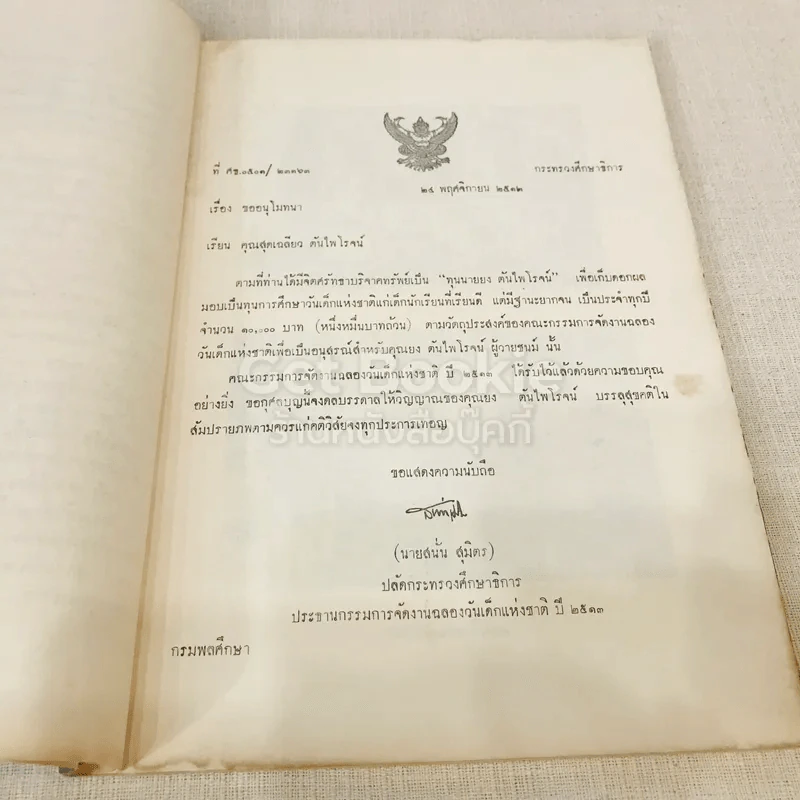 ที่ ศธ.๐๕๐๑/ ๒๓๑๖๓
กระทรวงศึกษาธิการ
๒๔ พฤศจิกายน ๒๕๑๒
เรื่อง ขออนุโมทนา
เรียน คุณสุดเฉลียว ตันไพโรจน์
ตามที่ท่านได้มีจิตศรัทธาบริจาคทรัพย์เป็น "ทุนนายยง ตันไพโรจน์" เพื่อเก็บดอกผล
มอบเป็นทุนการศึกษาวันเด็กแห่งชาติแก่เด็กนักเรียนที่เรียนดี แต่มีฐานะยากจน เป็นประจำทุกปี
จำนวน ๑๐,๐๐๐ บาท (หนึ่งหมื่นบาทถ้วน) ตามวัตถุประสงค์ของคณะกรรมการจัดงานฉลอง
วันเด็กแห่งชาติเพื่อเป็นอนุสรณ์สำหรับคุณยง ตันไพโรจน์ ผู้วายชนม์ นั้น
คณะกรรมการจัดงานฉลองวันเด็กแห่งชาติ ปี ๒๕๑๓ ได้รับไว้แล้วด้วยความขอบคุณ
อย่างยิ่ง ขอกุศลบุญนี้จงดลบรรดาลให้วิญญาณของคุณยง ตันไพโรจน์ บรรลุสุขคติใน
สัมปรายภพตามควรแก่คติวิสัยจงทุกประการเทอญ
ร้านหนังสือบุ๊คกี้
ขอแสดงความนับถือ
(นายสนั่น สุมิตร)
ปลัดกระทรวงศึกษาธิการ
ประธานกรรมการจัดงานฉลองวันเด็กแห่งชาติ ปี ๒๕๑๓
กรมพลศึกษา